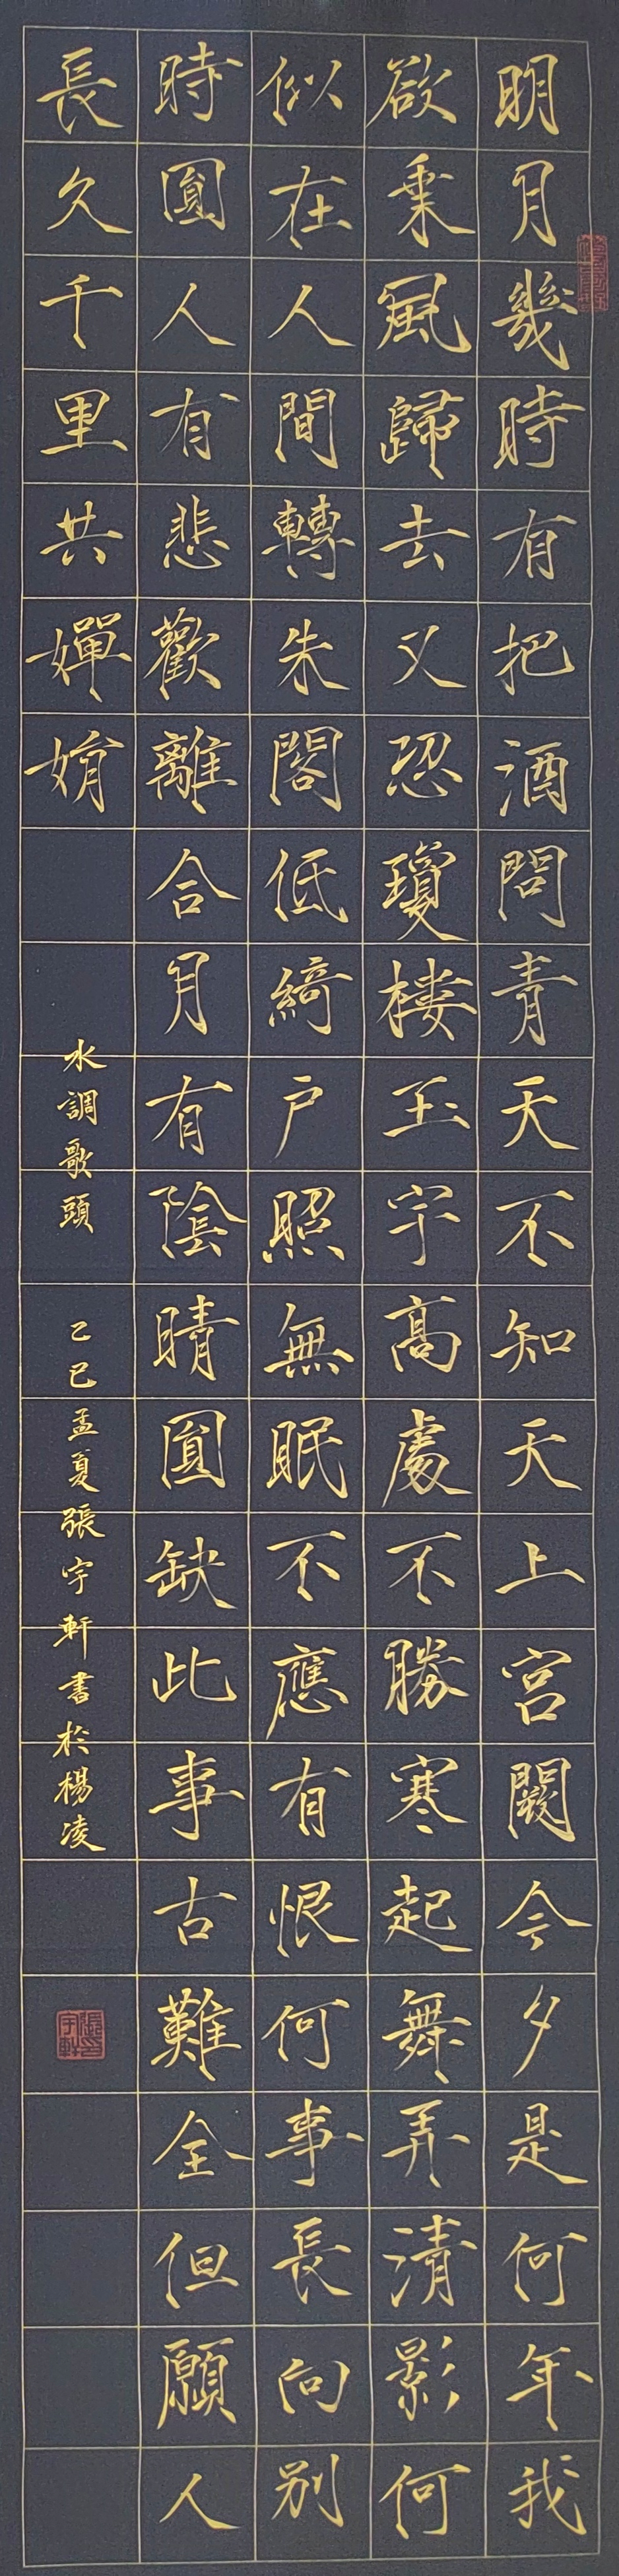 明月幾時有把酒問青天不知天上宮闕今夕是何年我
欲乘風歸去又恐瓊樓玉宇高處不勝寒起舞弄清影何
似在人間轉朱閣低綺戶照無眠不應有恨何事長向別
時圓人有悲歡離合月有陰晴圓缺此事古難全但願人
長久千里共嬋娟
水調歌頭 乙巳孟夏張宇軒書於楊凌
張宇軒印